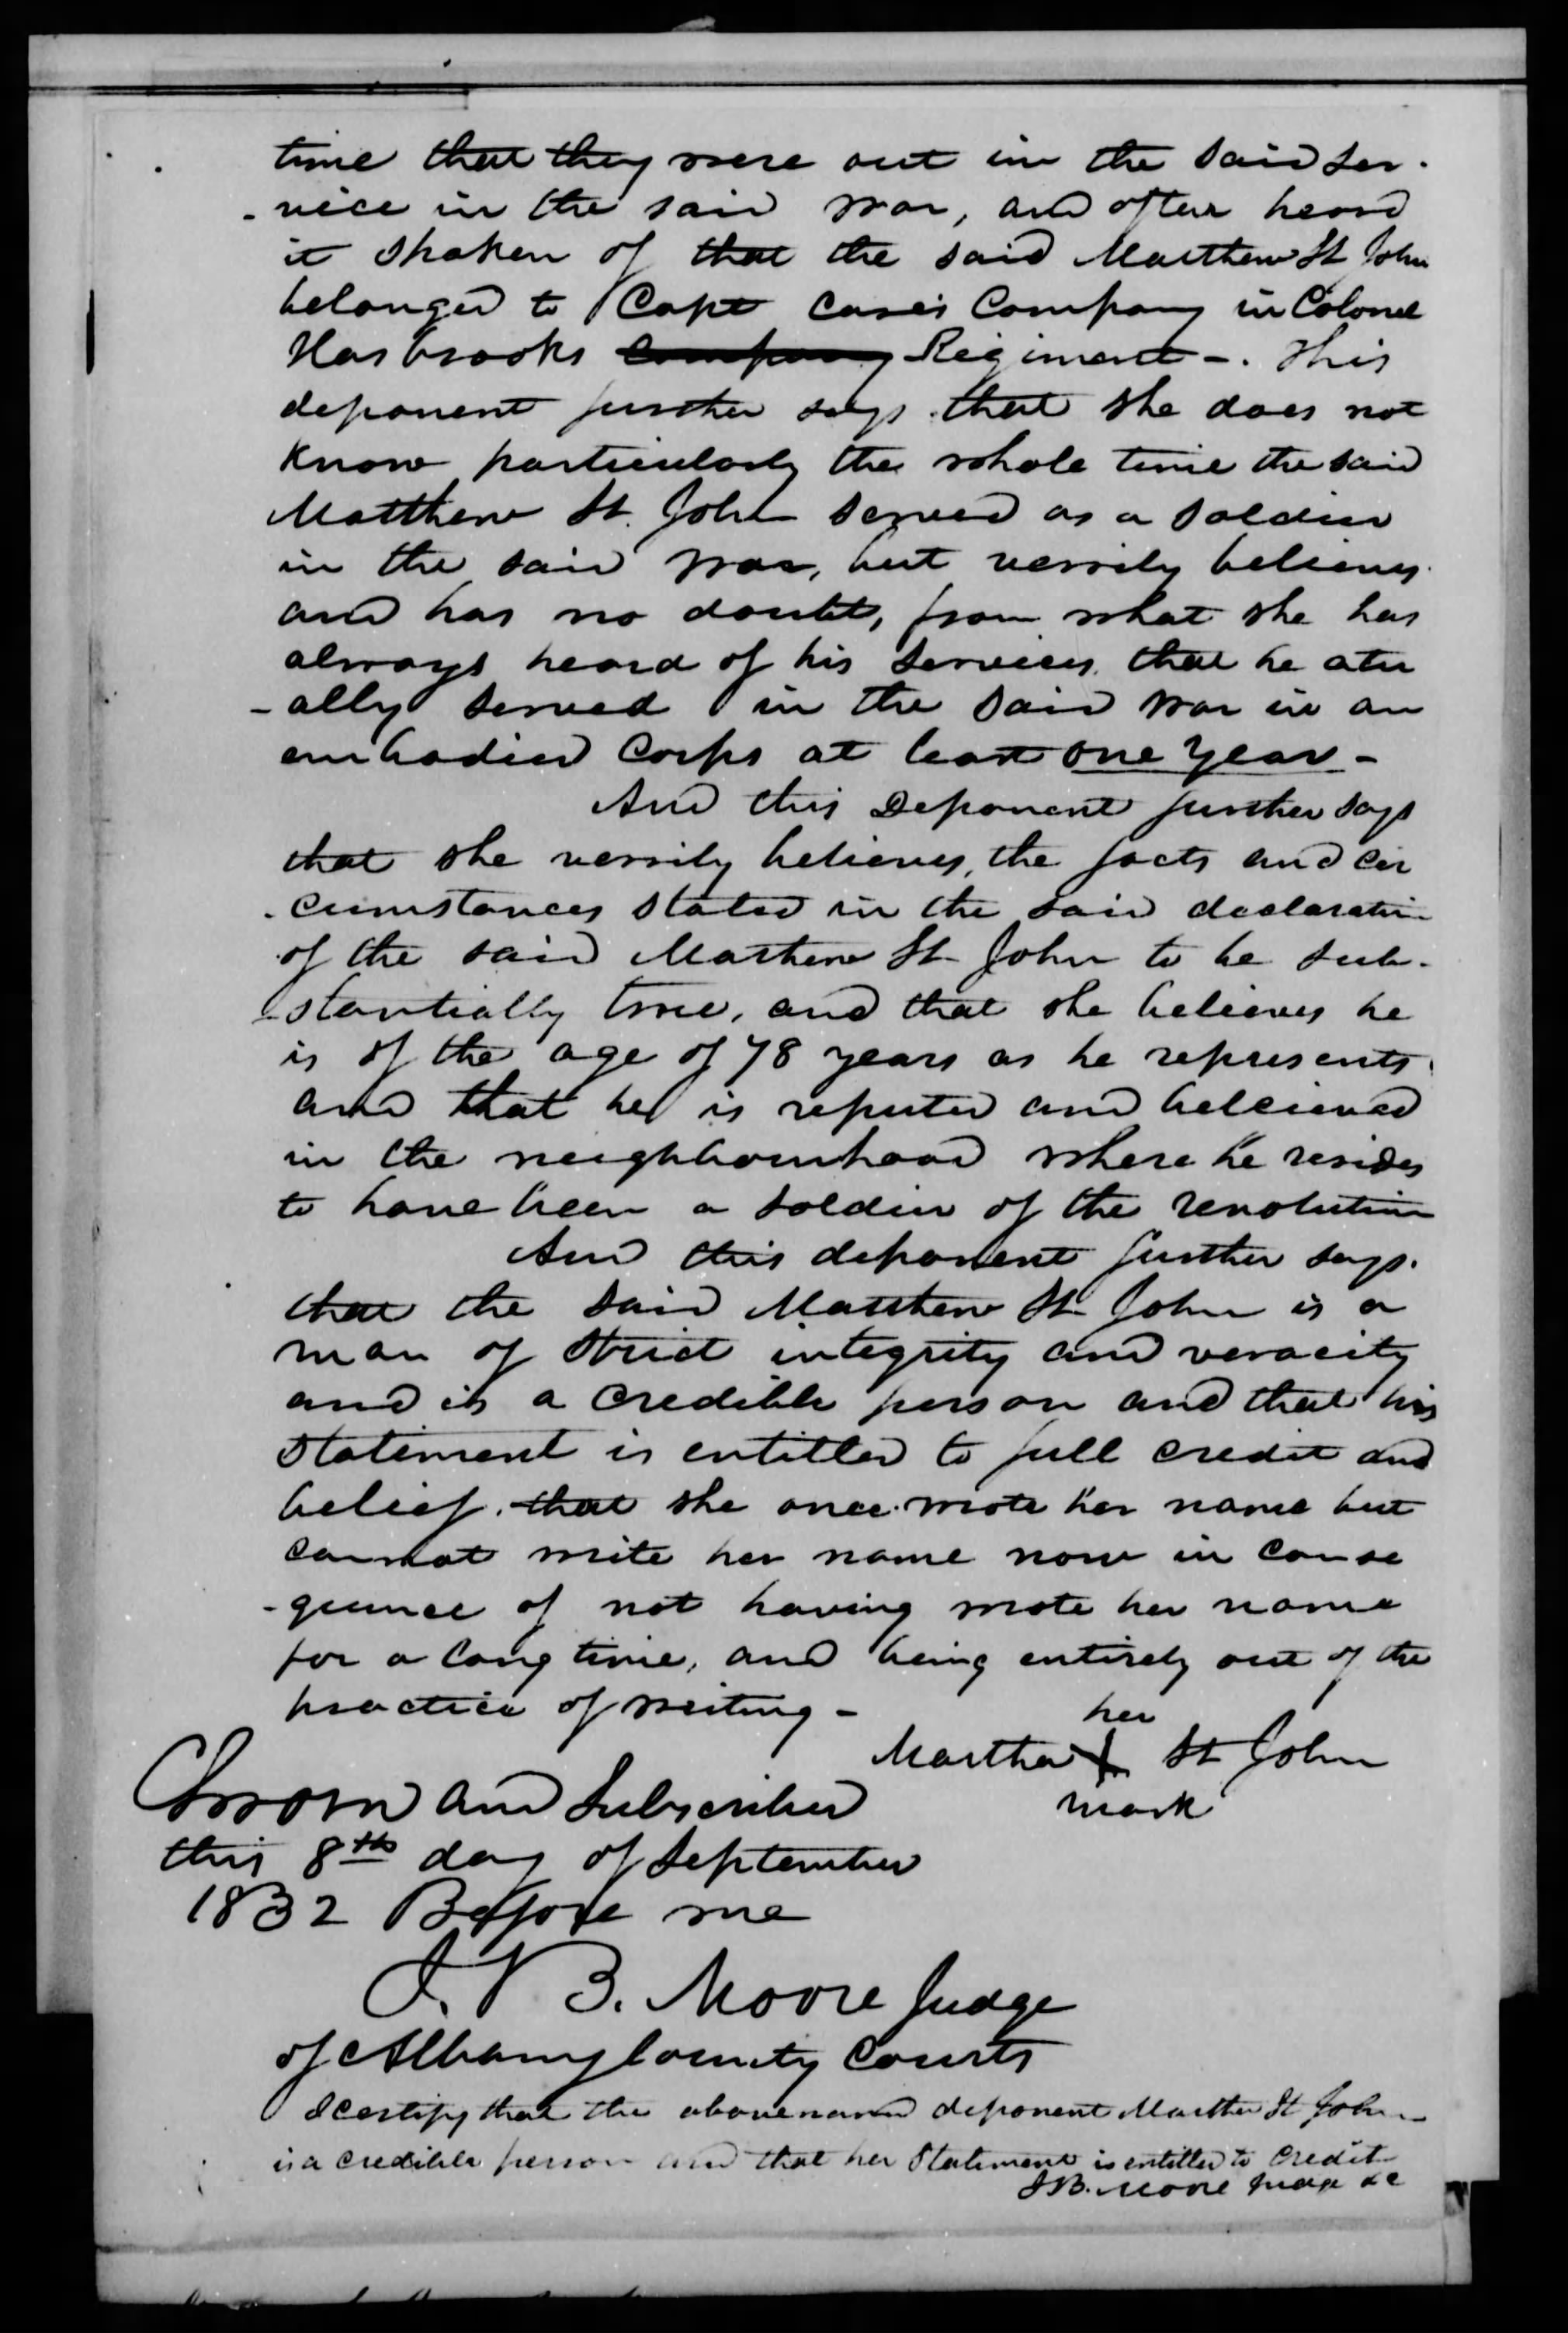 time that they were out in the said ser-
-vice in the said war, and often heard
it spoken of that the said Matthew St John
belonged to Capt Case's Company in Colonel
Hasbrooks company Regiment -. This
deponent further says that she does not
know particularly the whole time the said
Matthew St. John served as a soldier
in the said war, but verrily believes
and has no doubt, from what she has
always heard of his services, that he atu
-ally served in the said war in an
embodied Corps at least one year -
And this Deponent further says
that she verrily believes, the facts and cir
-cumstances stated in the said declaration
of the said Matthew St John to be sub-
-stantially true, and that she believes he
is of the age of 78 years as he represents
and that he is reputed and beleieved
in the neighbourhood where he resides
to have been a soldier of the revolution
And this deponent further says.
that the said Matthew St John is a
man of strict integrity and veracity
and is a credible person and that his
statement is entitled to full credit and
belief. that she once wrote her name but
cannot write her name now in conse
-quence of not having wrote her name
for a long time, and being entirely out of the
practice of writing -
her
Martha X St John
mark
Sworn and Subscribed
this 8th day of September
1832 Before me
J. B. Moore Judge
of Albany County Courts
I certify that the above named deponent Martha St John
is a credible person and that her Statement is entitled to Credit
J B. Moore Judge &c